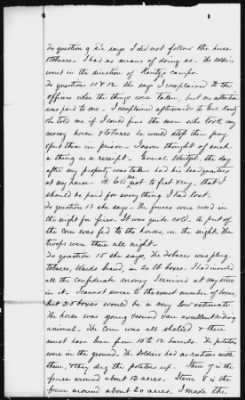 To question 9 &c, says I did not follow the horse
tobacco. I had no means of doing so. The soldiers
went in the direction of camp.
To question 11 & 12 she says I complained to the
officers when the things were taken, but no attention
was paid to me. I complained afterwards to
He told me if I could find the men who took my
money horse & tobacco he would stop their pay
& put them in prison. I never thought of such
a thing as a receipt. General the day
after my property was taken had his head quarters
at my house. He told me to fret very, that I
should be paid for everything I had lost.
To question 13 she says. The fences were used in
the night for fires. It was quite cold. A part of
the corn was fed to the horses, in the night. The
troops were there all night.
To question 15 she says. The tobacco was plug
tobacco, brand, in 20 lb boxes. I had invested
all the confederate money I received at my store
in it. I cannot swear to the exact number of boxes
but 25 boxes would be a very low estimate
The horse was young sound an excellent riding
animal. The corn was all shelled & there
must have been from 10 to 12 barrels. The potatoes
were in the ground. The soldiers had no rations with
them, & they dug the potatoes up. Item 7 is the
fence around about 12 acres. Item 8 is the
fence around about 20 acres. I made the